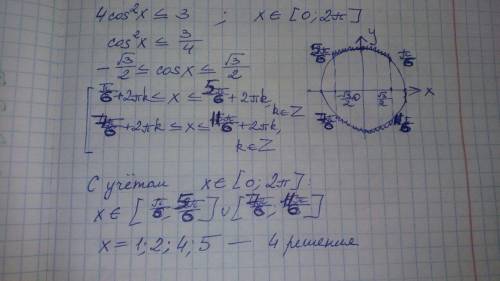 4cos²x ≤ 3 ; x ∈ [0; 2π]
cos²x ≤ 3/4
-√3/2 ≤ cosx ≤ √3/2
π/6 + 2πk ≤ x ≤ 5π/6 + 2πk, k∈Z
7π/6 + 2πk ≤ x ≤ 11π/6 + 2πk,
k∈Z
y
5π/6
π/6
-√3/2
0
√3/2
x
7π/6
11π/6
С учётом x ∈ [0; 2π]:
x ∈ [π/6; 5π/6] ∪ [7π/6; 11π/6]
x = 1; 2; 4; 5 — 4 решения